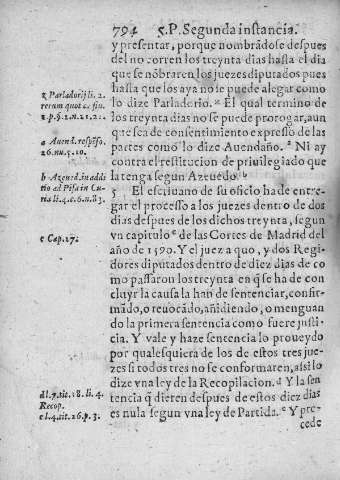 794 5.P. Segunda instancia.
y presentar, porque nombrãdose despues
del no corren los treynta dias hasta el dia
que se nõbraren los juezes diputados pues
hasta que los aya no se puede alegar como
lo dize Parladorio. z El qual termino de
los treynta dias no se puede prorogar, aun
que sea de consentimiento expresso de las
partes como lo dize Auendaño. a Ni ay
contra el restitucion de priuilegiado que
la tenga segun Azeuedo b
5 El escriuano de su oficio ha de entre-
gar el processo a los juezes dentro de dos
dias despues de los dichos treynta, segun
vn capitulo c de las Cortes de Madrid del
año de 1590. Y el juez a quo, y dos Regi-
dores diputados dentro de diez dias de co
mo passaron los treynta en q̃ se ha de con
cluyr la causa la han de sentenciar, confir-
mãdo, o reuocãdo, añidiendo, o menguan
do la primera sentencia como fuere justi-
cia. Y vale y haze sentencia lo proueydo
por qualesquiera de los de estos tres jue-
zes si todos tres no se conformaren, assi lo
dize vna ley de la Recopilacion. d Y la sen
tencia q̃ dieren despues de estos diez dias
es nula segun vna ley de Partida. e Y pre-
cede
z Parladorij li. 2.
rerum quot c. fin.
1. p. §. 1. n. 21. 2.
a Auend. respõso.
26. nu. 5. 10.
b Azeued. in addi
tio ad Pisa in Cu-
ria li. 4. c. 6. n. 83.
c Cap. 17.
d l. 7. tit. 18. li. 4.
Recop.
e l. 4. tit. 26. p. 3.